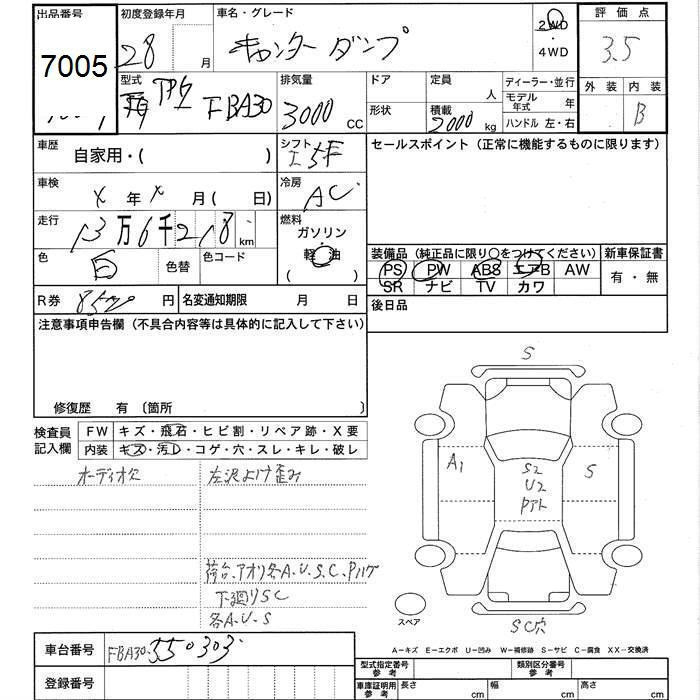 出品番号 初度登録年月 車名・グレード 評価点
7005 28 月 キャンター ダンプ 2WD ・ 4WD 3.5
型式 排気量 ドア 定員 ディーラー・並行 外装 内装
TPG FBA30 3000 CC 形状 人 モデル年式 年 B
積載 2000 kg ハンドル 左・右
車歴 自家用・( ) シフト 5F セールスポイント (正常に機能するものに限ります)
車検 X 年 X 月 ( 日) 冷房 AC
走行 13万6千218 km 燃料 ガソリン・(軽油)
装備品 (純正品に限り〇をつけてください) 新車保証書
色 白 色替 色コード PS PW ABS エアB AW 有・無
SR ナビ TV カワ
R券 8520 円 名変通知期限 月 日 後日品
注意事項申告欄 (不具合内容等は具体的に記入して下さい)
修復歴 有 〔箇所 〕
検査員記入欄 FW キズ・飛石・ヒビ割・リペア跡・X要
内装 キズ・汚レ・コゲ・穴・スレ・キレ・破レ
オーディオ欠 左沢よけ歪み
荷台、アオリ各A.U.S.C.Pハゲ
下廻りSC
各A.U.S
S
A1 S2 S
U2
Pアト
スペア
SC穴
A-キズ E-エクボ U-凹み W-補修跡 S-サビ C-腐食 XX-交換済
車台番号 FBA30-550303
登録番号
型式指定番号 参考 類別区分番号 参考
車庫証明用 参考 長さ cm 幅 cm 高さ cm